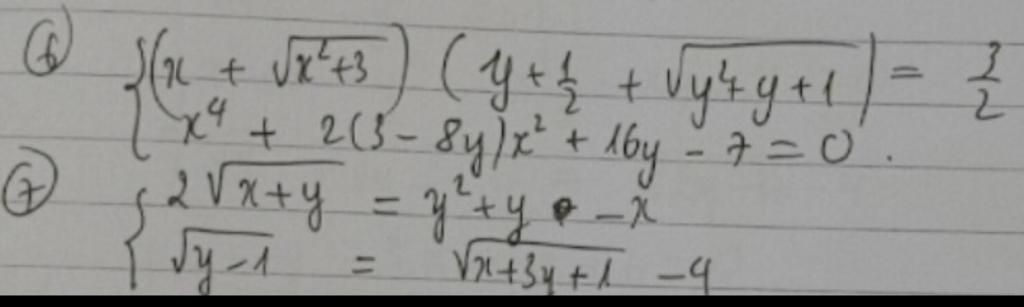 ⑥ { (x + √(x²+3)) (y + 1/2 + √(y²+y+1)) = 3/2
x⁴ + 2(3 - 8y)x² + 16y - 7 = 0.
⑦ { 2√(x+y) = y² + y - x
√(y-1) = √(x+3y+1) - 4